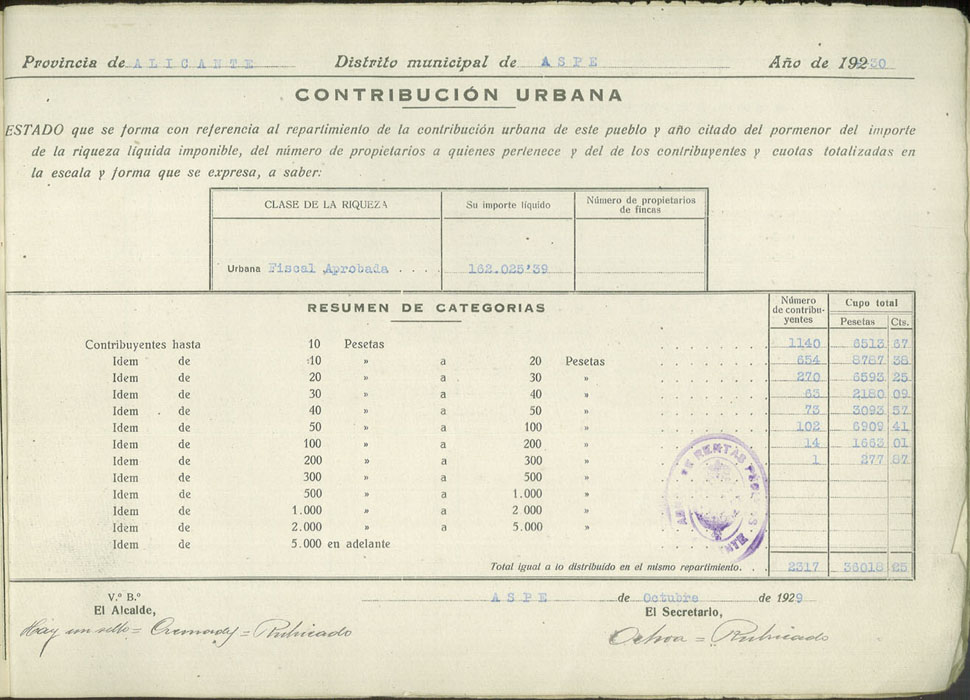 Provincia de ALICANTE Distrito municipal de ASPE Año de 19230
CONTRIBUCIÓN URBANA
ESTADO que se forma con referencia al repartimiento de la contribución urbana de este pueblo y año citado del pormenor del importe
de la riqueza líquida imponible, del número de propietarios a quienes pertenece y del de los contribuyentes y cuotas totalizadas en
la escala y forma que se expresa, a saber:
CLASE DE LA RIQUEZA Su importe líquido Número de propietarios
de fincas
Urbana Fiscal Aprobada . . . . 162.025'39
RESUMEN DE CATEGORIAS Número
de contribu-
yentes Cupo total
Pesetas Cts.
Contribuyentes hasta 10 Pesetas 1140 6513 67
Idem de 10 » a 20 Pesetas 654 8787 38
Idem de 20 » a 30 » 270 6593 25
Idem de 30 » a 40 » 63 2180 09
Idem de 40 » a 50 » 73 3093 57
Idem de 50 » a 100 » 102 6909 41
Idem de 100 » a 200 » 14 1663 01
Idem de 200 » a 300 » 1 277 87
Idem de 300 » a 500 »
Idem de 500 » a 1.000 »
Idem de 1.000 » a 2 000 »
Idem de 2.000 » a 5.000 »
Idem de 5.000 en adelante
DE RENTAS
Total igual a lo distribuído en el mismo repartimiento. . . 2317 36018 25
V.º B.º ASPE de Octubre de 1929
El Alcalde, El Secretario,
Hay un sello = Cremades = Rubricado Ochoa = Rubricado